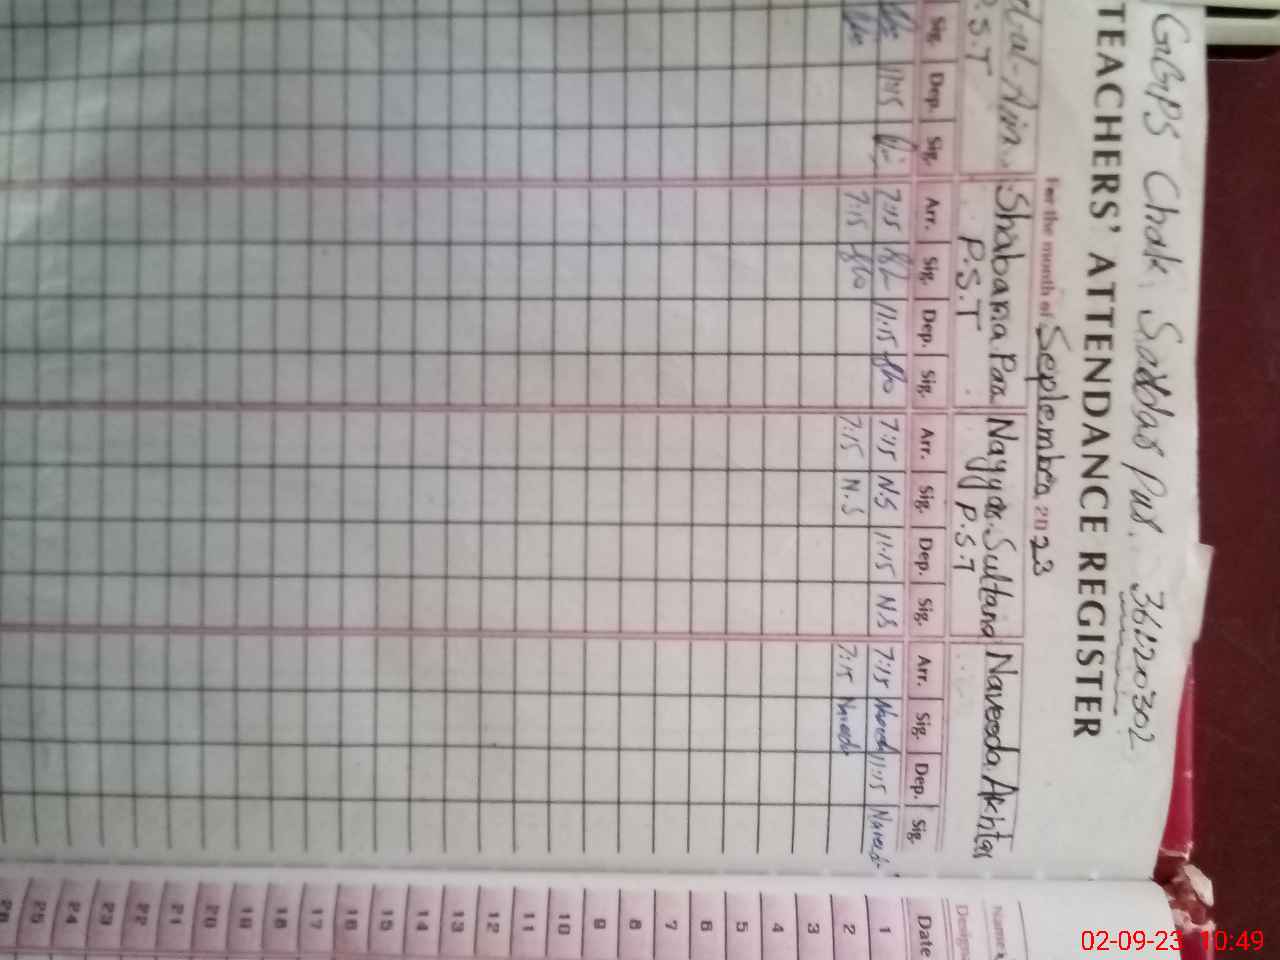 GGPS Chak Saddar Pur. 36220302
TEACHERS' ATTENDANCE REGISTER
For the month of September 2023
Shabana Naggar Sultana Naveeda Akhtar
P.S.T P.S.T P.S.T
Sig. Dep. Sig. Arr. Sig. Dep. Sig. Arr. Sig. Dep. Sig. Arr. Sig. Dep. Sig. Date
11:15 7:15 11:15 7:15 N.S 11:15 N.S 7:15 11:15 1
7:15 7:15 N.S 7:15 2
3
4
5
6
7
8
9
10
11
12
13
14
15
16
17
18
19
20
21
22
23
24
25
26
02-09-23 10:49